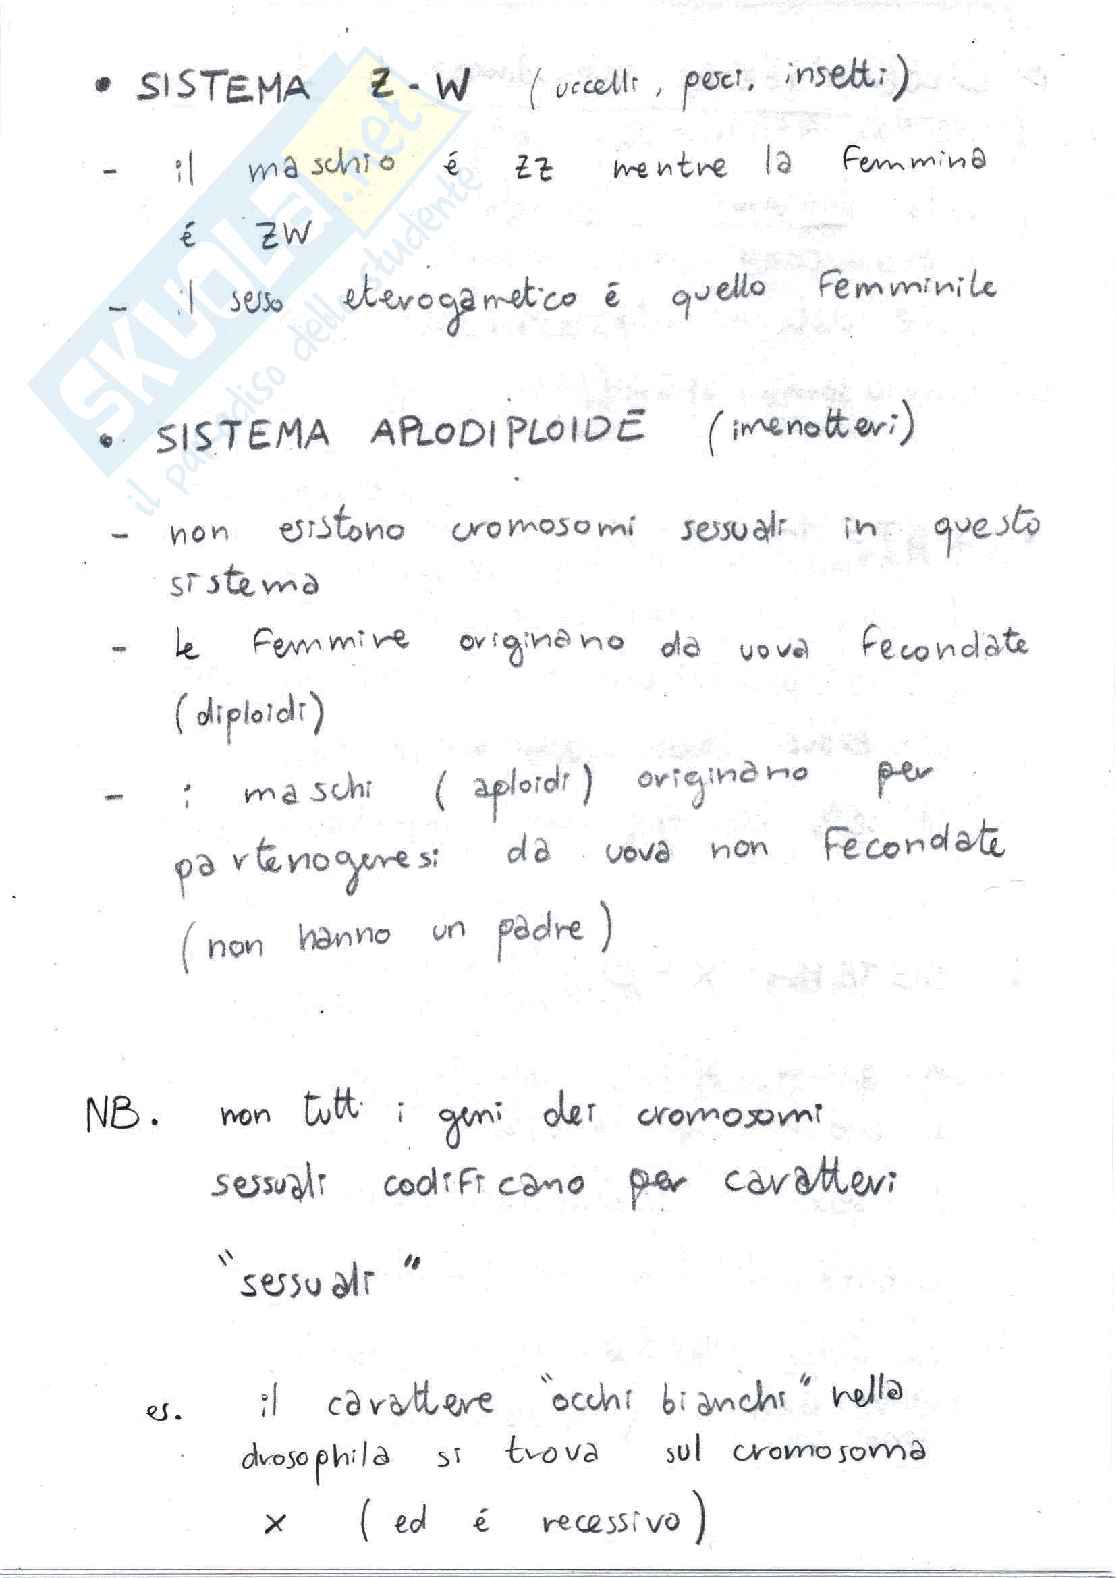 • SISTEMA Z-W (uccelli, pesci, insetti)
- il maschio é ZZ mentre la femmina
é ZW
- il sesso eterogametico é quello femminile
• SISTEMA APLODIPLOIDE (imenotteri)
- non esistono cromosomi sessuali in questo
sistema
- le femmine originano da uova fecondate
(diploidi)
- i maschi (aploidi) originano per
partenogenesi da uova non fecondate
(non hanno un padre)
NB. non tutti i geni dei cromosomi
sessuali codificano per caratteri
"sessuali"
es. il carattere "occhi bianchi" nella
drosophila si trova sul cromosoma
x (ed é recessivo)
SKUOLA.net
il paradiso dello studente